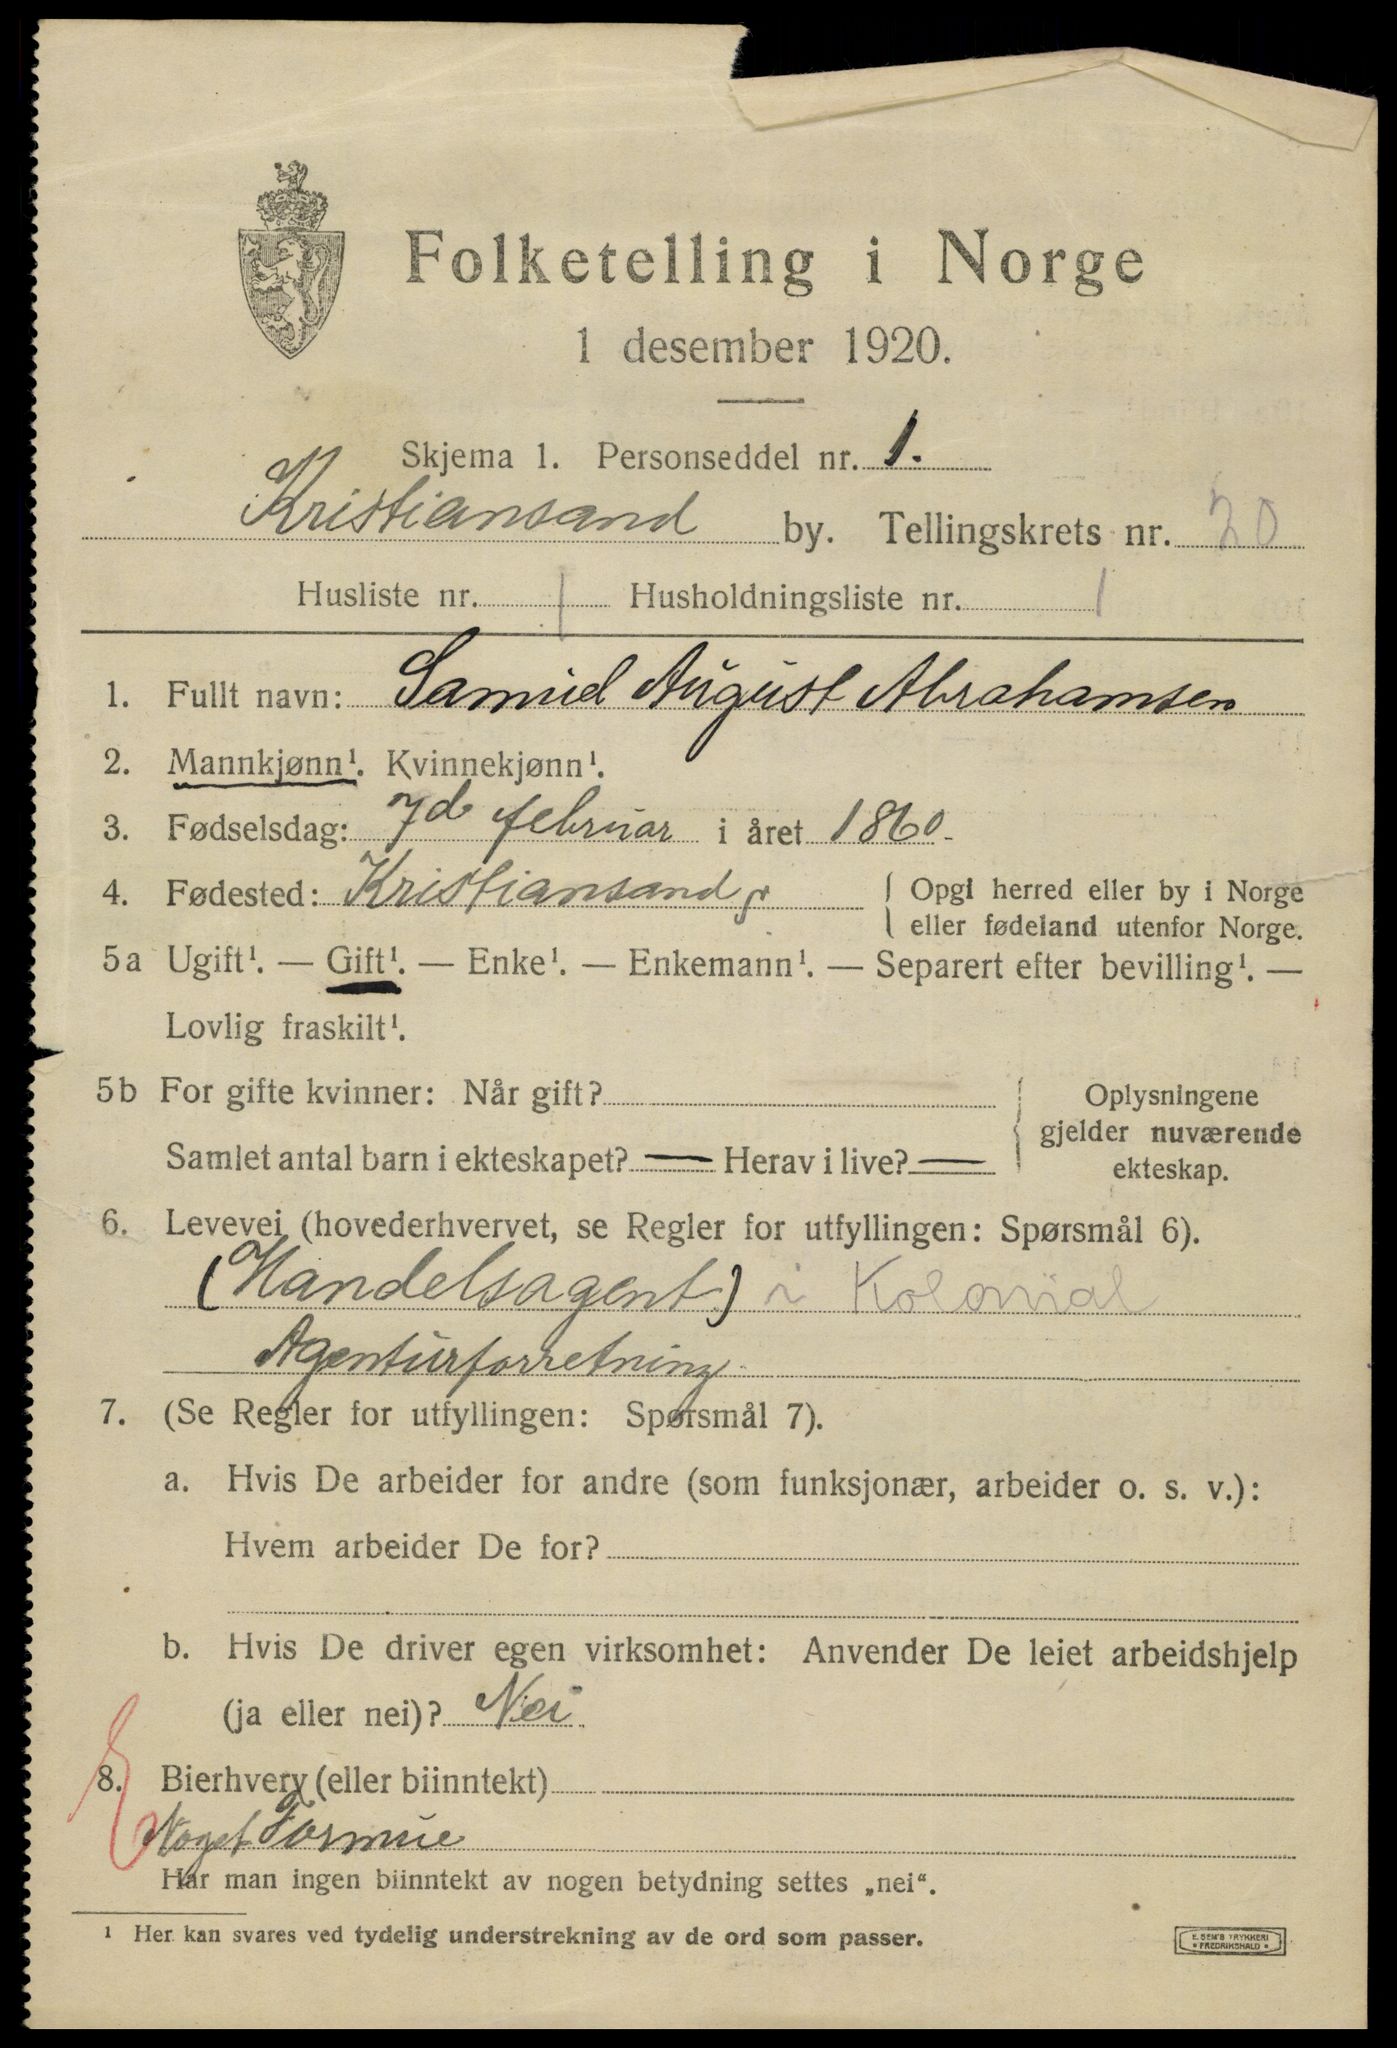 Folketelling i Norge
1 desember 1920.
Skjema 1. Personseddel nr. 1.
Kristiansand by. Tellingskrets nr. 20
Husliste nr. 1 Husholdningsliste nr. 1
1. Fullt navn: Samuel August Abrahamsen
2. Mannkjønn¹. Kvinnekjønn¹.
3. Fødselsdag: 7d februar i året 1860.
4. Fødested: Kristiansand { Opgi herred eller by i Norge
eller fødeland utenfor Norge.
5a Ugift¹. — Gift¹. — Enke¹. — Enkemann¹. — Separert efter bevilling¹. —
Lovlig fraskilt¹.
5b For gifte kvinner: Når gift?
Samlet antal barn i ekteskapet? — Herav i live? —
Oplysningene
gjelder nuværende
ekteskap.
6. Levevei (hovederhvervet, se Regler for utfyllingen: Spørsmål 6).
(Handelsagent) i Kolonial
Agenturforretning
7. (Se Regler for utfyllingen: Spørsmål 7).
a. Hvis De arbeider for andre (som funksjonær, arbeider o. s. v.):
Hvem arbeider De for?
b. Hvis De driver egen virksomhet: Anvender De leiet arbeidshjelp
(ja eller nei)? Nei
8. Bierhverv (eller biinntekt)
Noget Formue
Har man ingen biinntekt av nogen betydning settes „nei“.
¹ Her kan svares ved tydelig understrekning av de ord som passer.
E. SEM'S TRYKKERI
• FREDRIKSHALD •